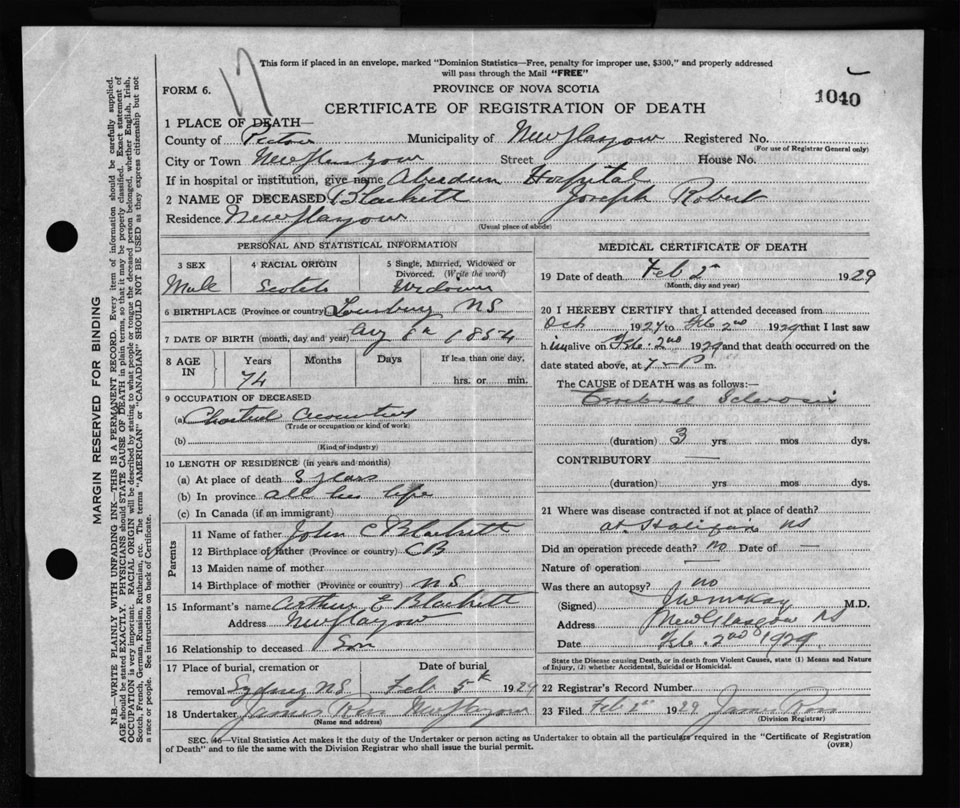 17
This form if placed in an envelope, marked "Dominion Statistics—Free, penalty for improper use, $300," and properly addressed
will pass through the Mail "FREE"
FORM 6.
PROVINCE OF NOVA SCOTIA
1040
CERTIFICATE OF REGISTRATION OF DEATH
1 PLACE OF DEATH—
County of Pictou Municipality of New Glasgow Registered No.
(For use of Registrar General only)
City or Town New Glasgow Street House No.
If in hospital or institution, give name Aberdeen Hospital
2 NAME OF DECEASED Blackett Joseph Robert
Residence New Glasgow
(Usual place of abode)
PERSONAL AND STATISTICAL INFORMATION
3 SEX 4 RACIAL ORIGIN 5 Single, Married, Widowed or Divorced. (Write the word)
Male Scotch Widower
6 BIRTHPLACE (Province or country) Louisburg NS
7 DATE OF BIRTH (month, day and year) Aug 6th 1854
8 AGE IN Years Months Days If less than one day,
74 hrs. or min.
9 OCCUPATION OF DECEASED
(a)
(Trade or occupation or kind of work)
(b)
(Kind of industry)
10 LENGTH OF RESIDENCE (in years and months)
(a) At place of death 3 years
(b) In province all his life
(c) In Canada (if an immigrant)
Parents
11 Name of father John C Blackett
12 Birthplace of father (Province or country) CB
13 Maiden name of mother
14 Birthplace of mother (Province or country) NS
15 Informant's name Arthur E Blackett
Address New Glasgow
16 Relationship to deceased Son
17 Place of burial, cremation or Date of burial
removal Sydney NS. Feb 5th 1929
18 Undertaker James Ross New Glasgow
(Name and address)
MEDICAL CERTIFICATE OF DEATH
19 Date of death Feb 2nd 1929
(Month, day and year)
20 I HEREBY CERTIFY that I attended deceased from
Oct 1927 to Feb 2nd 1929 that I last saw
him alive on Feb. 2nd 1929 and that death occurred on
date stated above, at 7 — P m.
The CAUSE of DEATH was as follows:—
Cerebral Sclerosis
(duration) 3 yrs mos dys.
CONTRIBUTORY —
(duration) yrs mos dys.
21 Where was disease contracted if not at place of death?
at Halifax NS
Did an operation precede death? no Date of —
Nature of operation —
Was there an autopsy? no
(Signed) J W McKay M.D.
Address New Glasgow NS
Date Feb. 2nd 1929
State the Disease causing Death, or in death from Violent Causes, state (1) Means and Nature
of Injury, (2) whether Accidental, Suicidal or Homicidal.
22 Registrar's Record Number
23 Filed Feb 2nd 1929 James Ross
(Division Registrar)
SEC. 46—Vital Statistics Act makes it the duty of the Undertaker or person acting as Undertaker to obtain all the particulars required in the "Certificate of Registration
of Death" and to file the same with the Division Registrar who shall issue the burial permit.
(OVER)
MARGIN RESERVED FOR BINDING
N.B.—WRITE PLAINLY WITH UNFADING INK—THIS IS A PERMANENT RECORD. Every item of information should be carefully supplied.
AGE should be stated EXACTLY. PHYSICIANS should STATE CAUSE OF DEATH in plain terms, so that it may be properly classified. Exact statement of
OCCUPATION is very important. RACIAL ORIGIN will be described by stating to what people or tongue the deceased person belonged, whether English, Irish,
Scotch, French, German, Russian, Ruthenian, etc. The terms "AMERICAN" or "CANADIAN" SHOULD NOT BE USED as they express citizenship but not
a race or people. See instructions on back of Certificate.